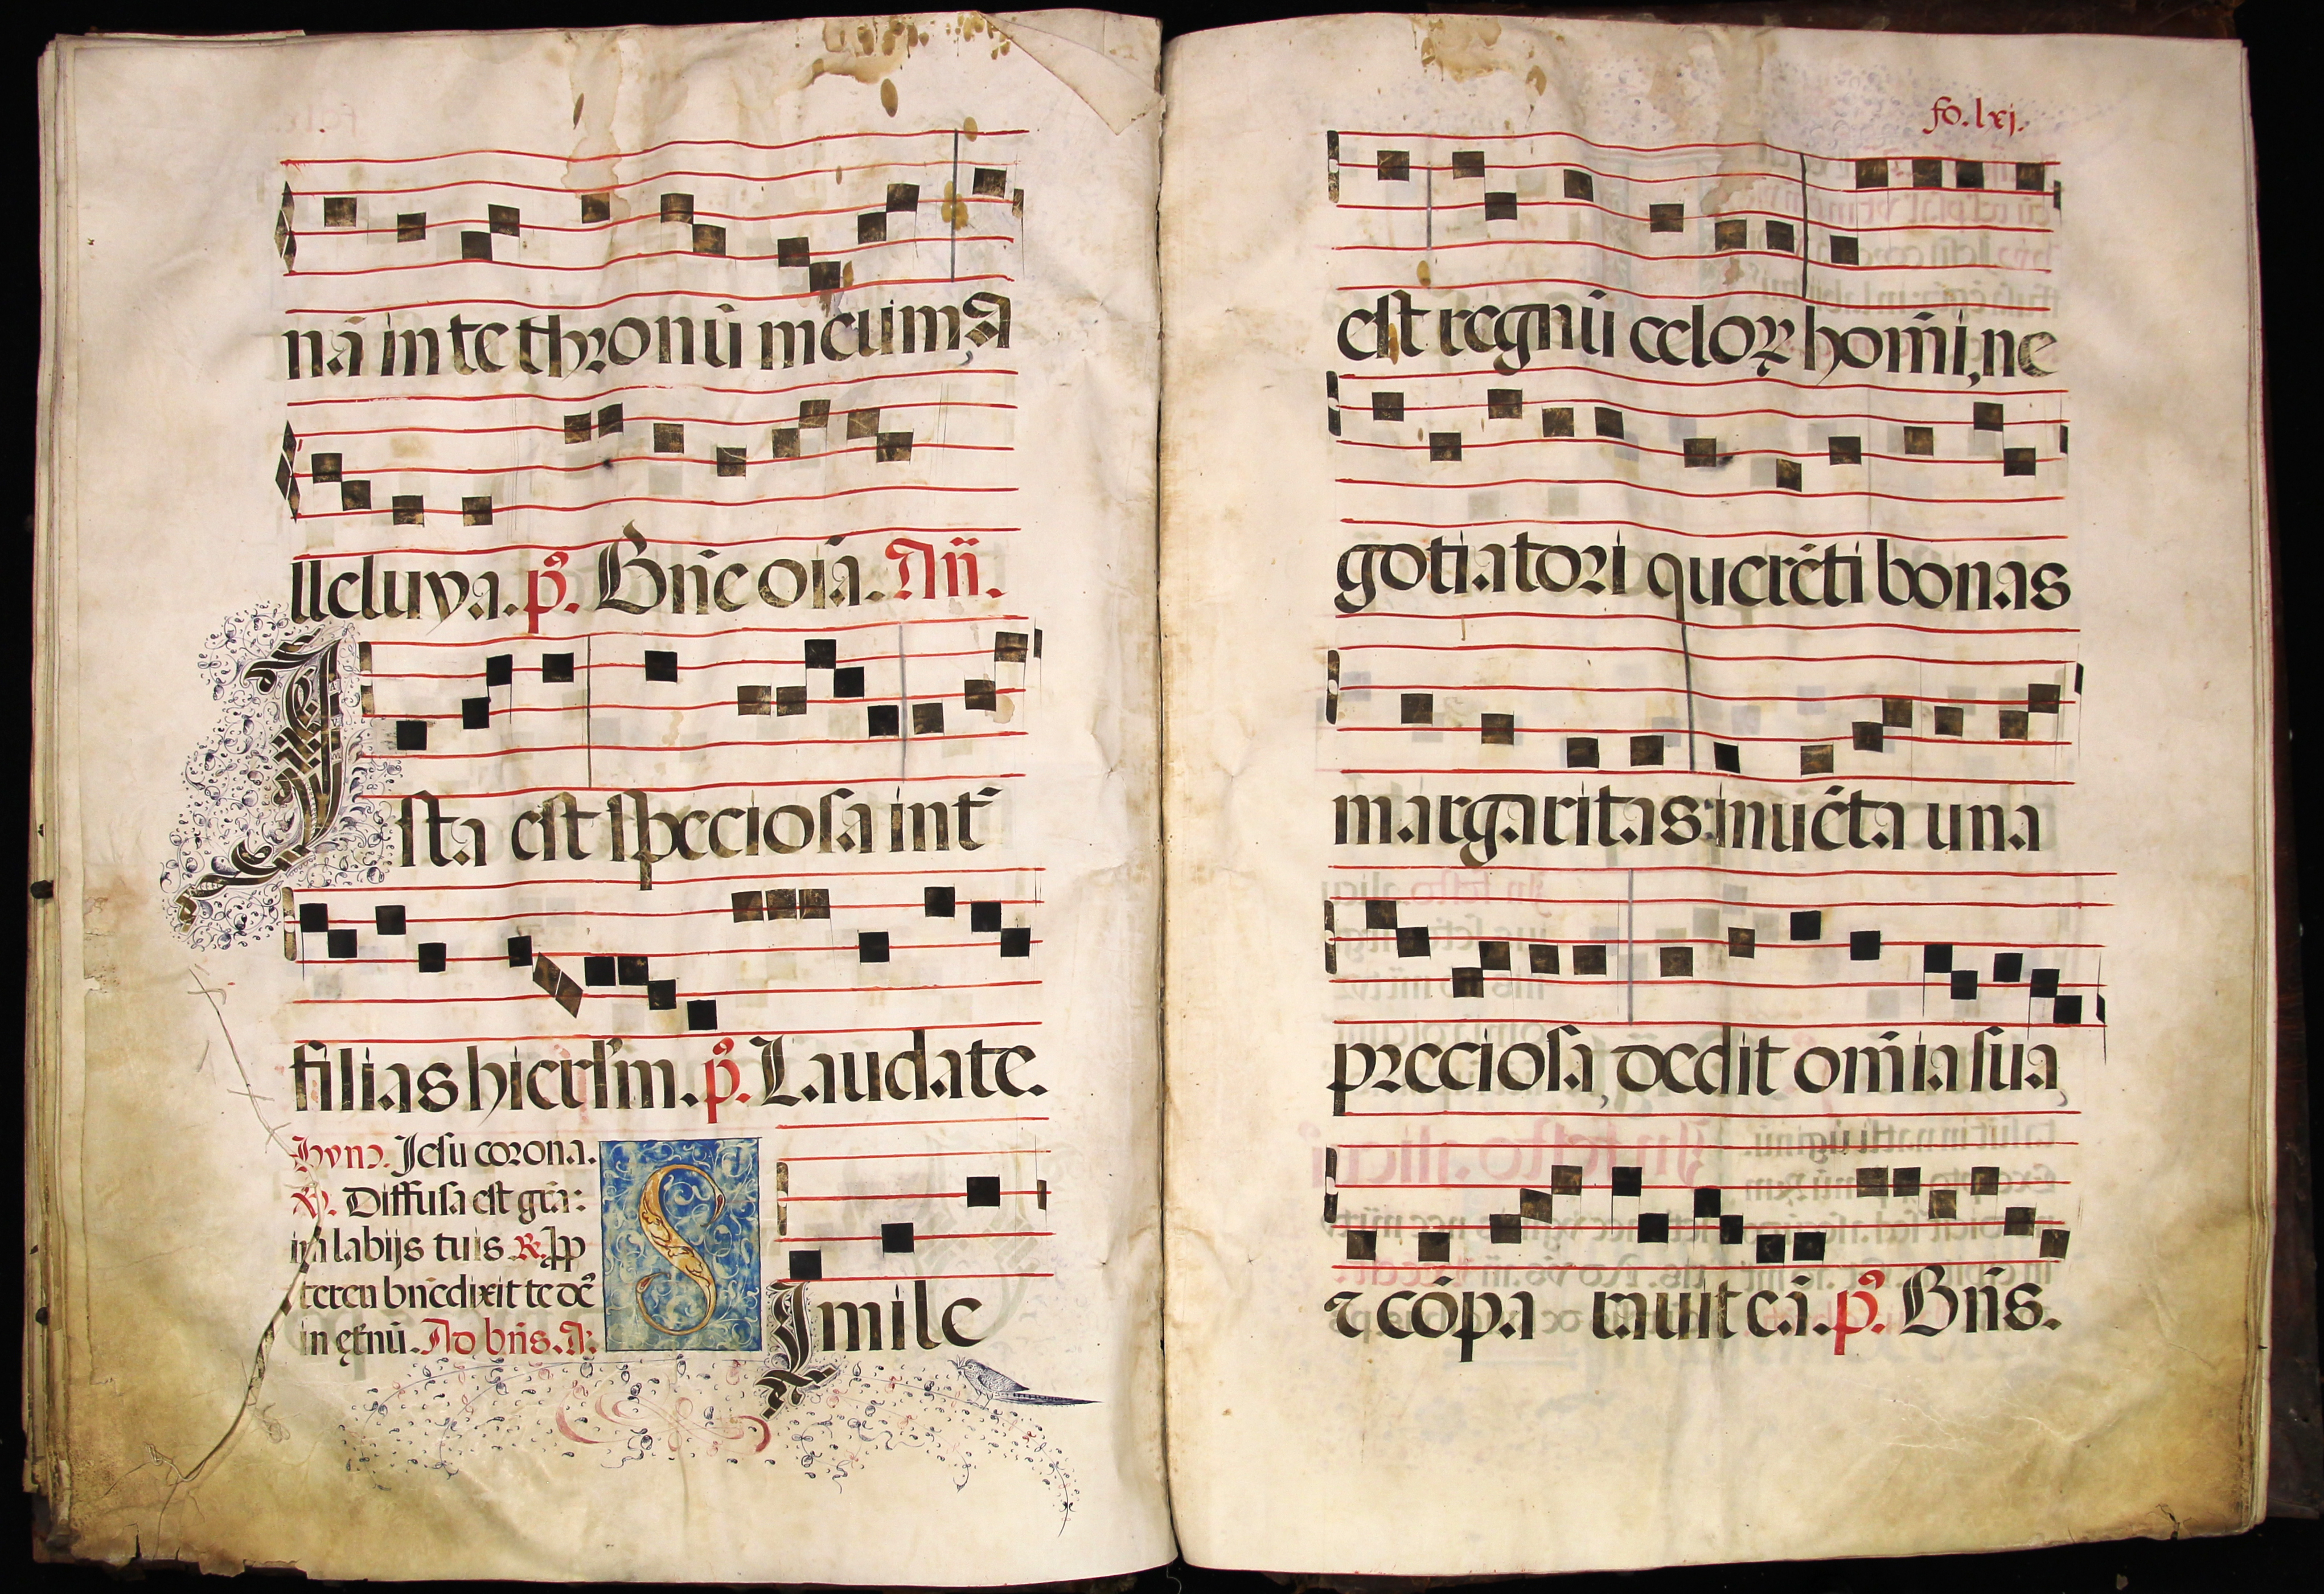 nā in te thronū meum, A
lleluya. p̃. Bn̄e oīa. Añ.
Ista est speciosa int̄
filias hierl̄m. p̃. Laudate.
Hyno. Jesu corona.
V. Diffusa est grā:
in labijs tuis R. pp
terea bn̄edixit te de᷒
in et̄nū. Ad bn̄s. A.
Simile
fo. lxj.
est regnū celoꝝ hom̄i, ne
gotiatori querēti bonas
margaritas: inuēta una
preciosa, dedit om̄ia sua,
⁊ cōpa rauit eā. p̃. Bn̄s.